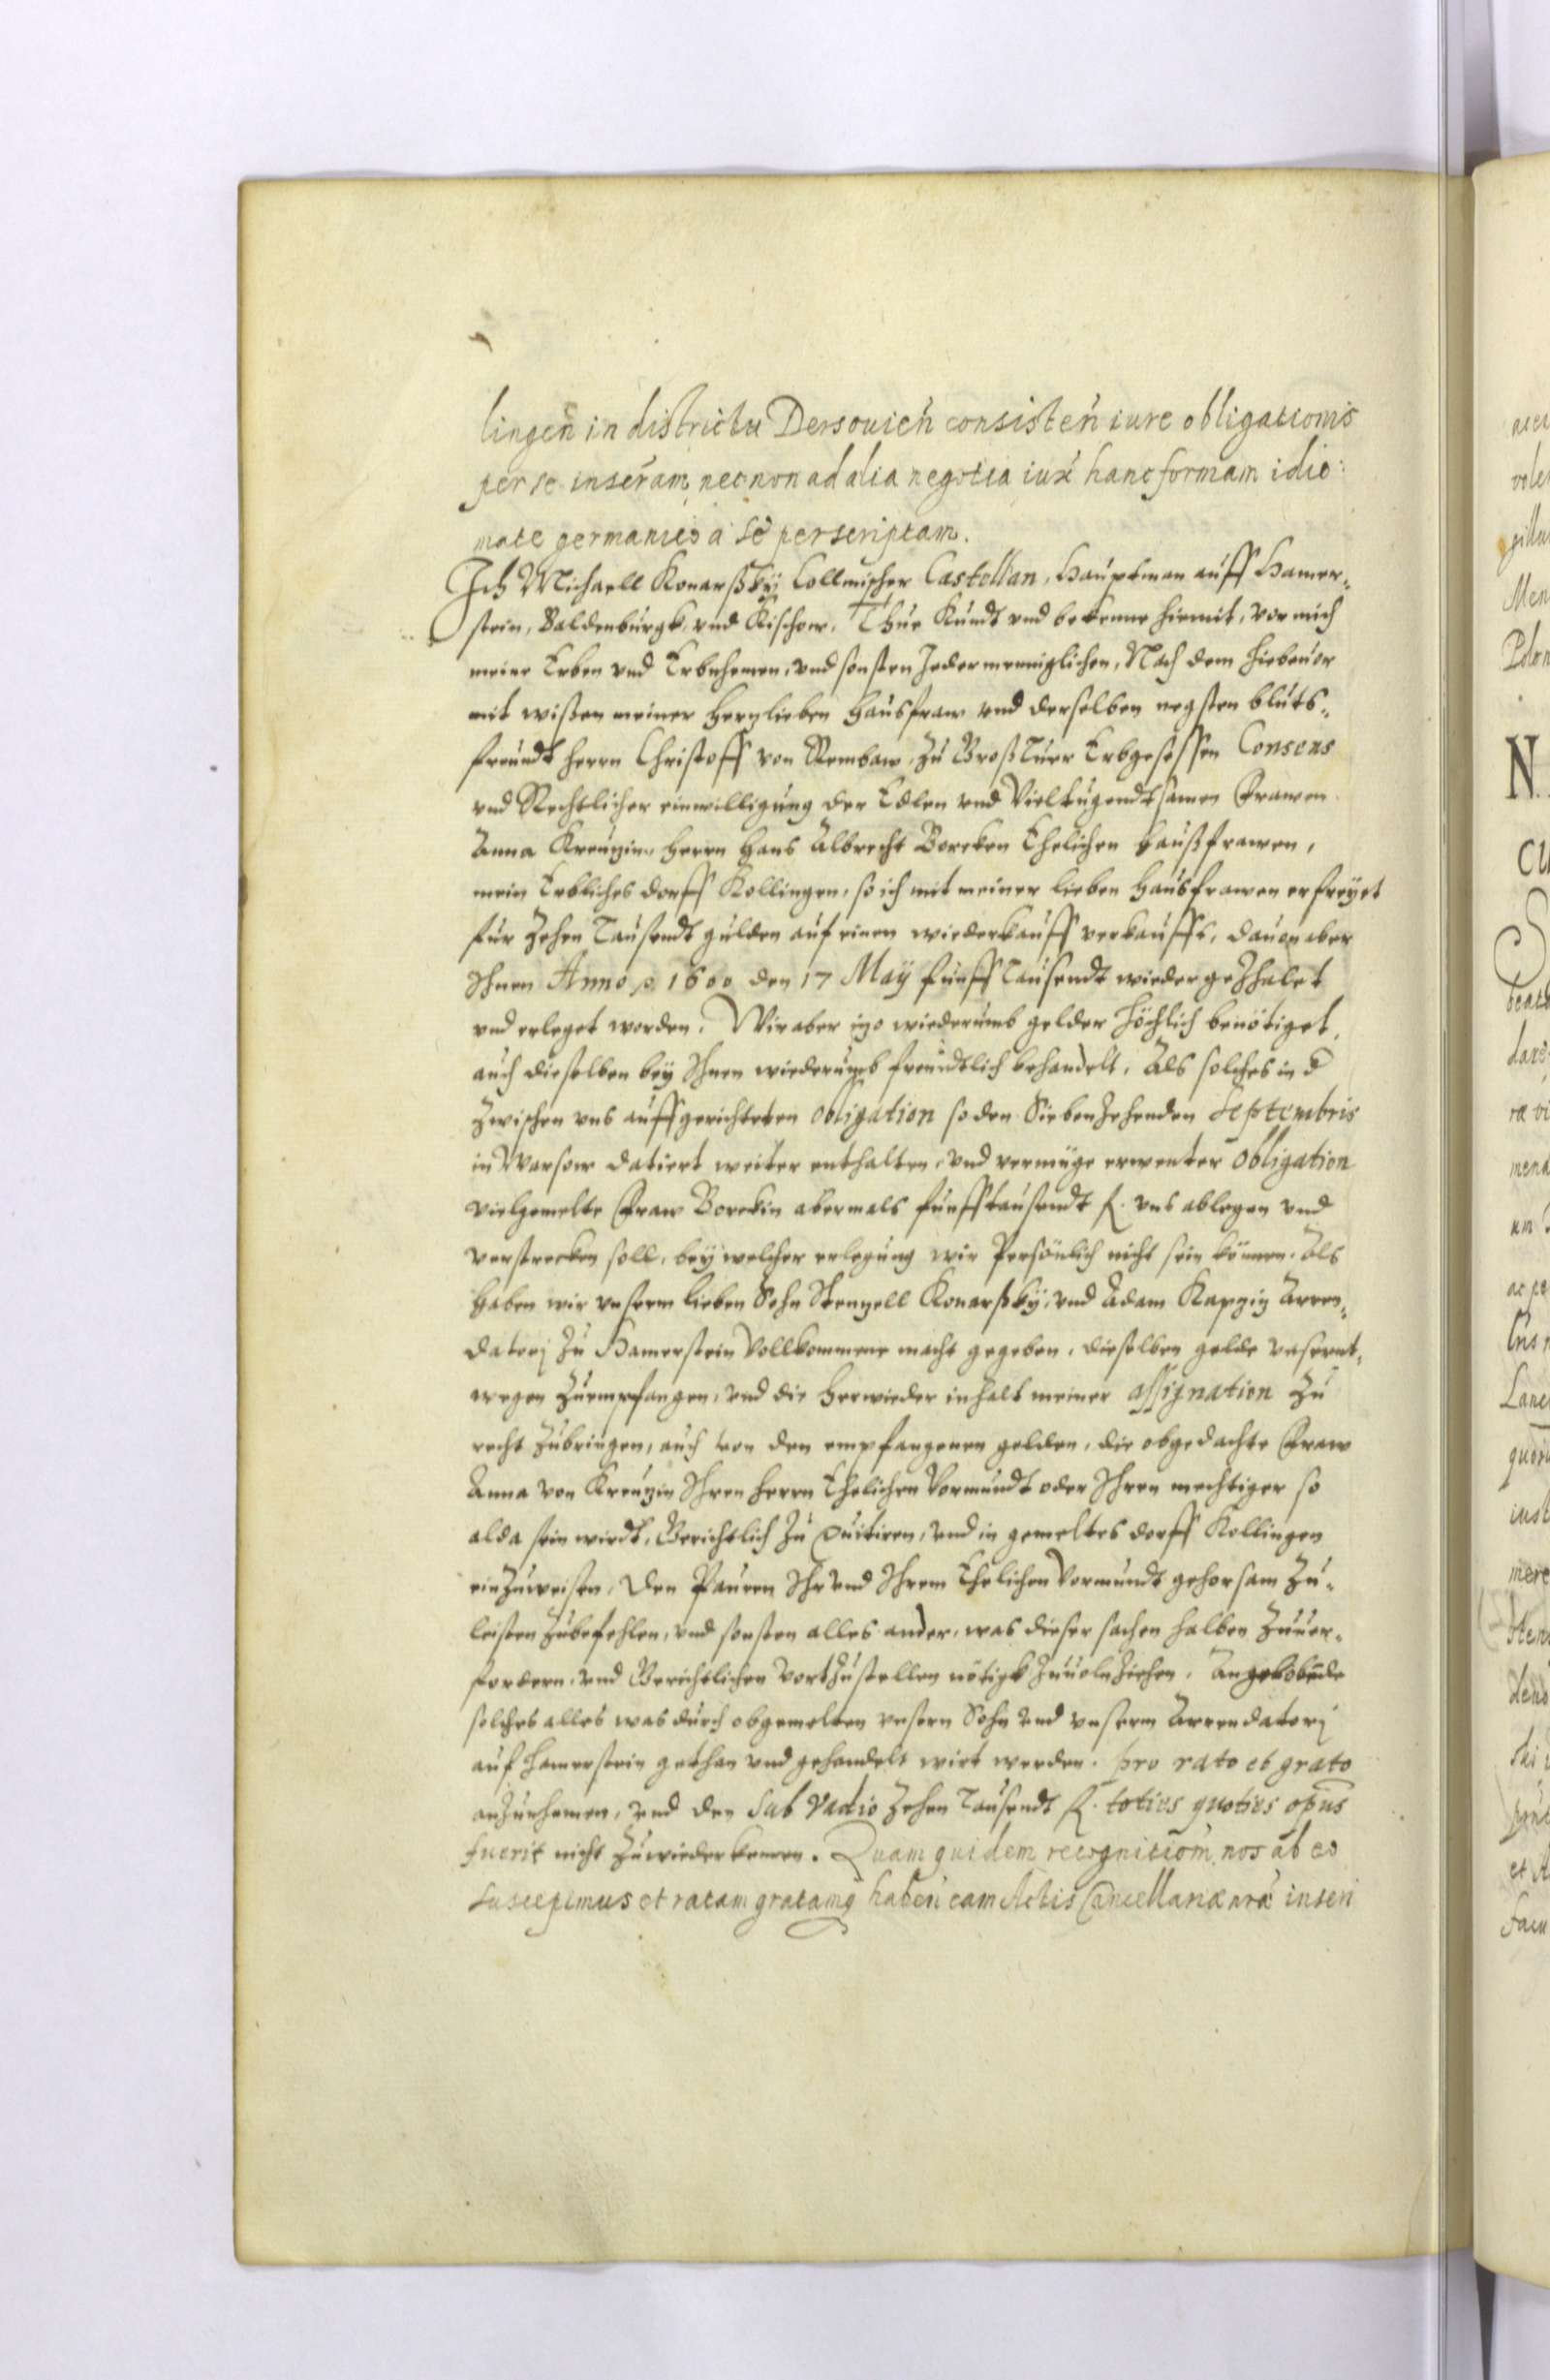 lingen̄ in districtu Dersouien̄ consisten̄ iure obligationis
per se inseram, necnon ad alia negotia iux̄ hanc formam idio:
mate germanico a se perscriptam.
Ich Michaell Konarßkÿ Collmischer Castellan, Hauptman auff Hamer„
stein, Baldenburgk, vnd Kischow, Thue Kundt vnd bekenne hiemit, vor mich
meine Erben vnd Erbnhemen, vnd sonsten Jedermenniglichen, Nach dem hiebeuor
mit wißen meiner herzlieben Hausfraw vnd derselben negsten bluts„
freundt Herrn Christoff von Rembaw, Zu Großturr Erbgesessen Consens
vnd Rechtlicher einwilligung der Edlen vnd Vieltugendtsamen Frawen
Anna Kreuzin, Herrn Hans Albrecht Borcken Ehelichen haußfrawen,
mein Erbliches dorff Kollingen, so ich mit meiner lieben Hausfrawen erfreyet
fur Zehen Tausendt gulden auf einen wiederkauff verkaufft, dauon aber
Ihnen Anno 1600 den 17 Maÿ funff Tausendt wieder geZhalet
vnd erleget worden. Wir aber izo wiederumb gelder höchlich benötiget,
auch dieselben beÿ Ihnen wiederumb freundtlich behandelt, Als solches in d
Zwischen vns auffgerichteten obligation so den SiebenZehenden Septembris
in Warsow datiert weiter enthalten, vnd vermüge erwenter obligation
vielgemelte Fraw Borckin abermals funfftausendt f. vns ablegen vnd
verstrecken soll, beÿ welcher erlegung wir Persönlich nicht sein können. Als
haben wir vnserm lieben Sohn Stenzell Konarßkÿ, vnd Adam Kapzig Arren„
datorj Zu Hamerstein Vollkommene macht gegeben, dieselben gelde vsernt„
wegen Zuempfangen, vnd die herwieder inhalt meiner assignation Zu
recht Zubringen, auch von den empfangenen gelden, die obgedachte Fraw
Anna von Kreuzin Ihren Herrn Ehelichen Vormundt oder Ihren mechtiger so
alda sein wirdt, Gerichtlich Zu Quitiren, vnd in gemeltes dorff Kollingen
einZuweisen, den Pauren Ihr vnd Ihrem Ehelichen Vormundt gehorsam Zu„
leisten Zubefehlen, vnd sonsten alles ander, was dieser sachen halben Zuuer„
fordern, vnd Gerichtlichen vortZustellen nötigk ZuuolnZiehen. Angelobende
solches alles was durch obgemelten vnsern Sohn vnd vnserm Arrendatorj
auf Hamerstein gethan vnd gehandelt wirt werden. pro rato et grato
anZunhemen, vnd den sub vadio Zehen Tausendt f. toties quoties opus
fuerit nicht Zuwiederkomen. Quam quidem recognitiom̄ nos ab eo
suscepimus et ratam gratamq haben̄ eam Actis Cancellariæ nr̄æ inseri